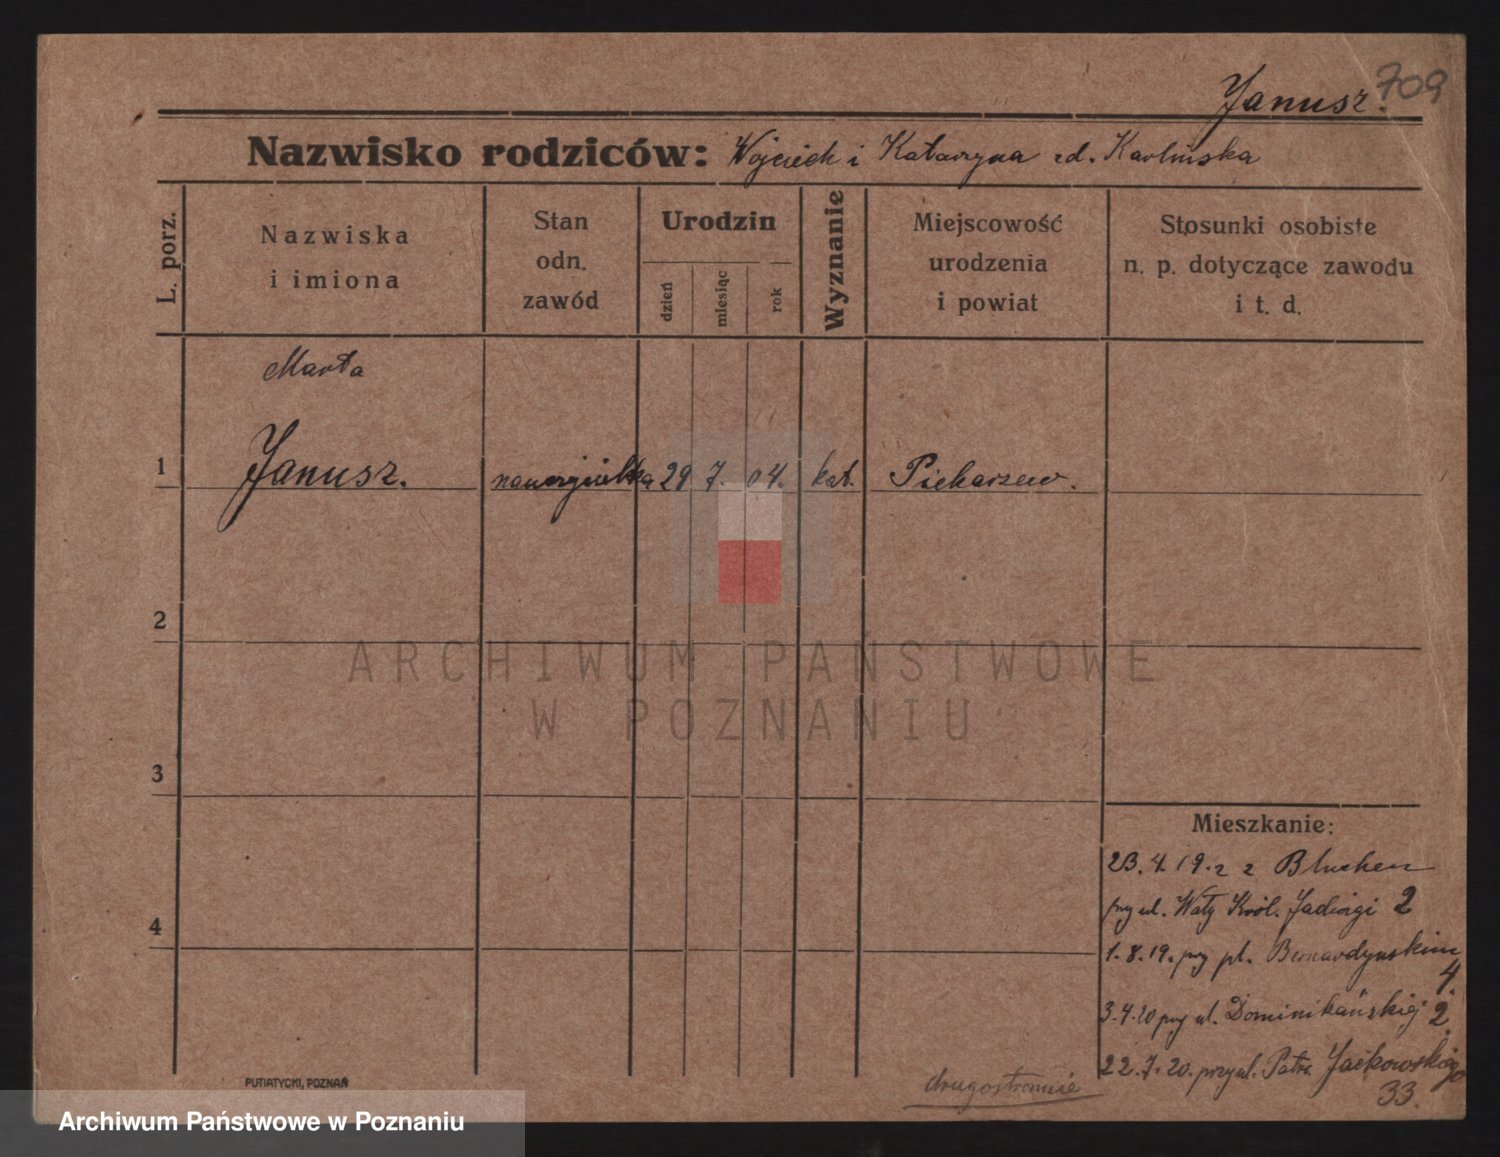 Janusz. 709
Nazwisko rodziców: Wojciech i Katarzyna zd. Karlińska
L. porz.
Nazwiska
i imiona
Stan
odn.
zawód
Urodzin
dzień
miesiąc
rok
Wyznanie
Miejscowość
urodzenia
i powiat
Stosunki osobiste
n. p. dotyczące zawodu
i t. d.
Marta
1 Janusz. nauczycielka 29 7. 04. kat. Piekarzew.
2
ARCHIWUM PAŃSTWOWE
W POZNANIU
3
Mieszkanie:
23. 4. 19. z Bluchen
przy ul. Wały Król. Jadwigi 2
4
1. 8. 19. przy pl. Bernardyńskim
4.
3. 4. 20 przy ul. Dominikańskiej 2.
22. 7. 20. przy ul. Patr. Jackowskiego
33.
drugostronnie
PUTIATYCKI, POZNAŃ
Archiwum Państwowe w Poznaniu